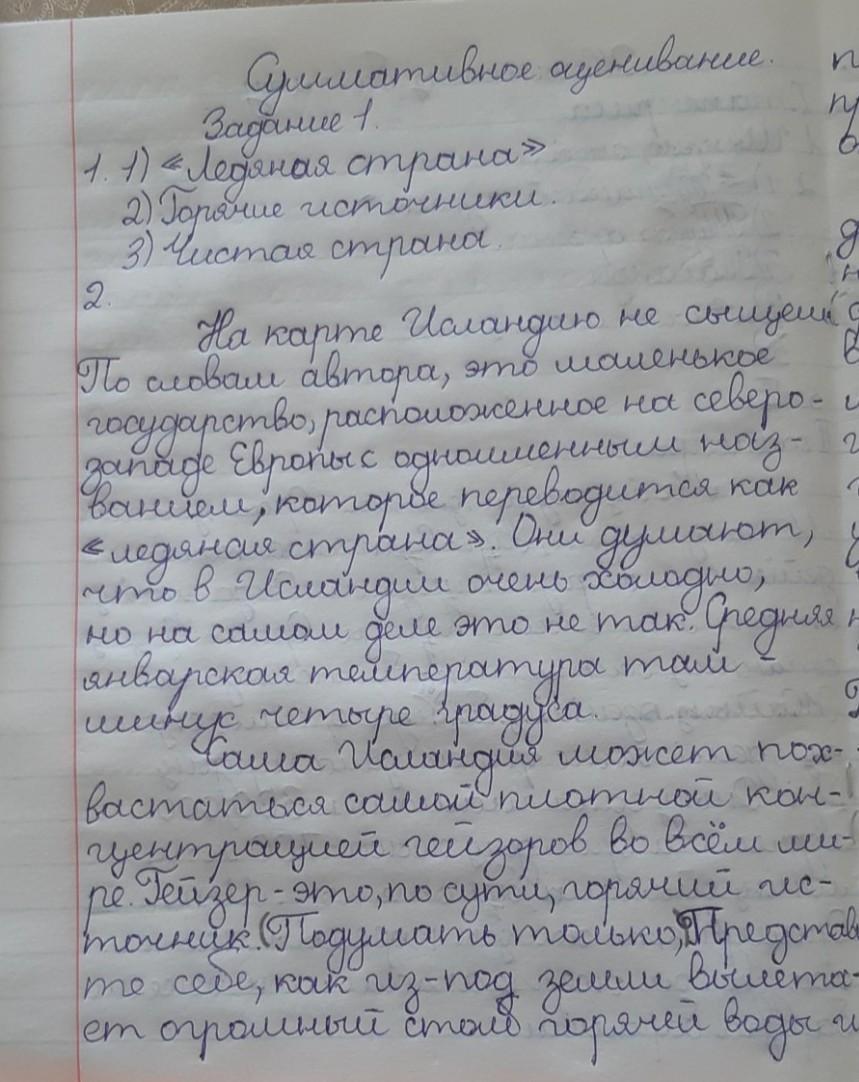 Суммативное оценивание.
Задание 1.
1. 1) «Ледяная страна»
2) Горячие источники.
3) Чистая страна.
2.
На карте Исландию не сыщеш
По словам автора, это маленькое
государство, расположенное на северо-
западе Европы с одноименным наз-
ванием, которое переводится как
«ледяная страна». Они думают,
что в Исландии очень холодно,
но на самом деле это не так. Средняя
январская температура там -
минус четыре градуса.
Сама Исландия может пох-
вастаться самой плотной кон-
центрацией гейзоров во всём ми-
ре. Гейзер - это, по сути, горячий ис-
точник. (Подумать только, Представ
те себе, как из-под земли вылета-
ет огромный столб горячей воды и